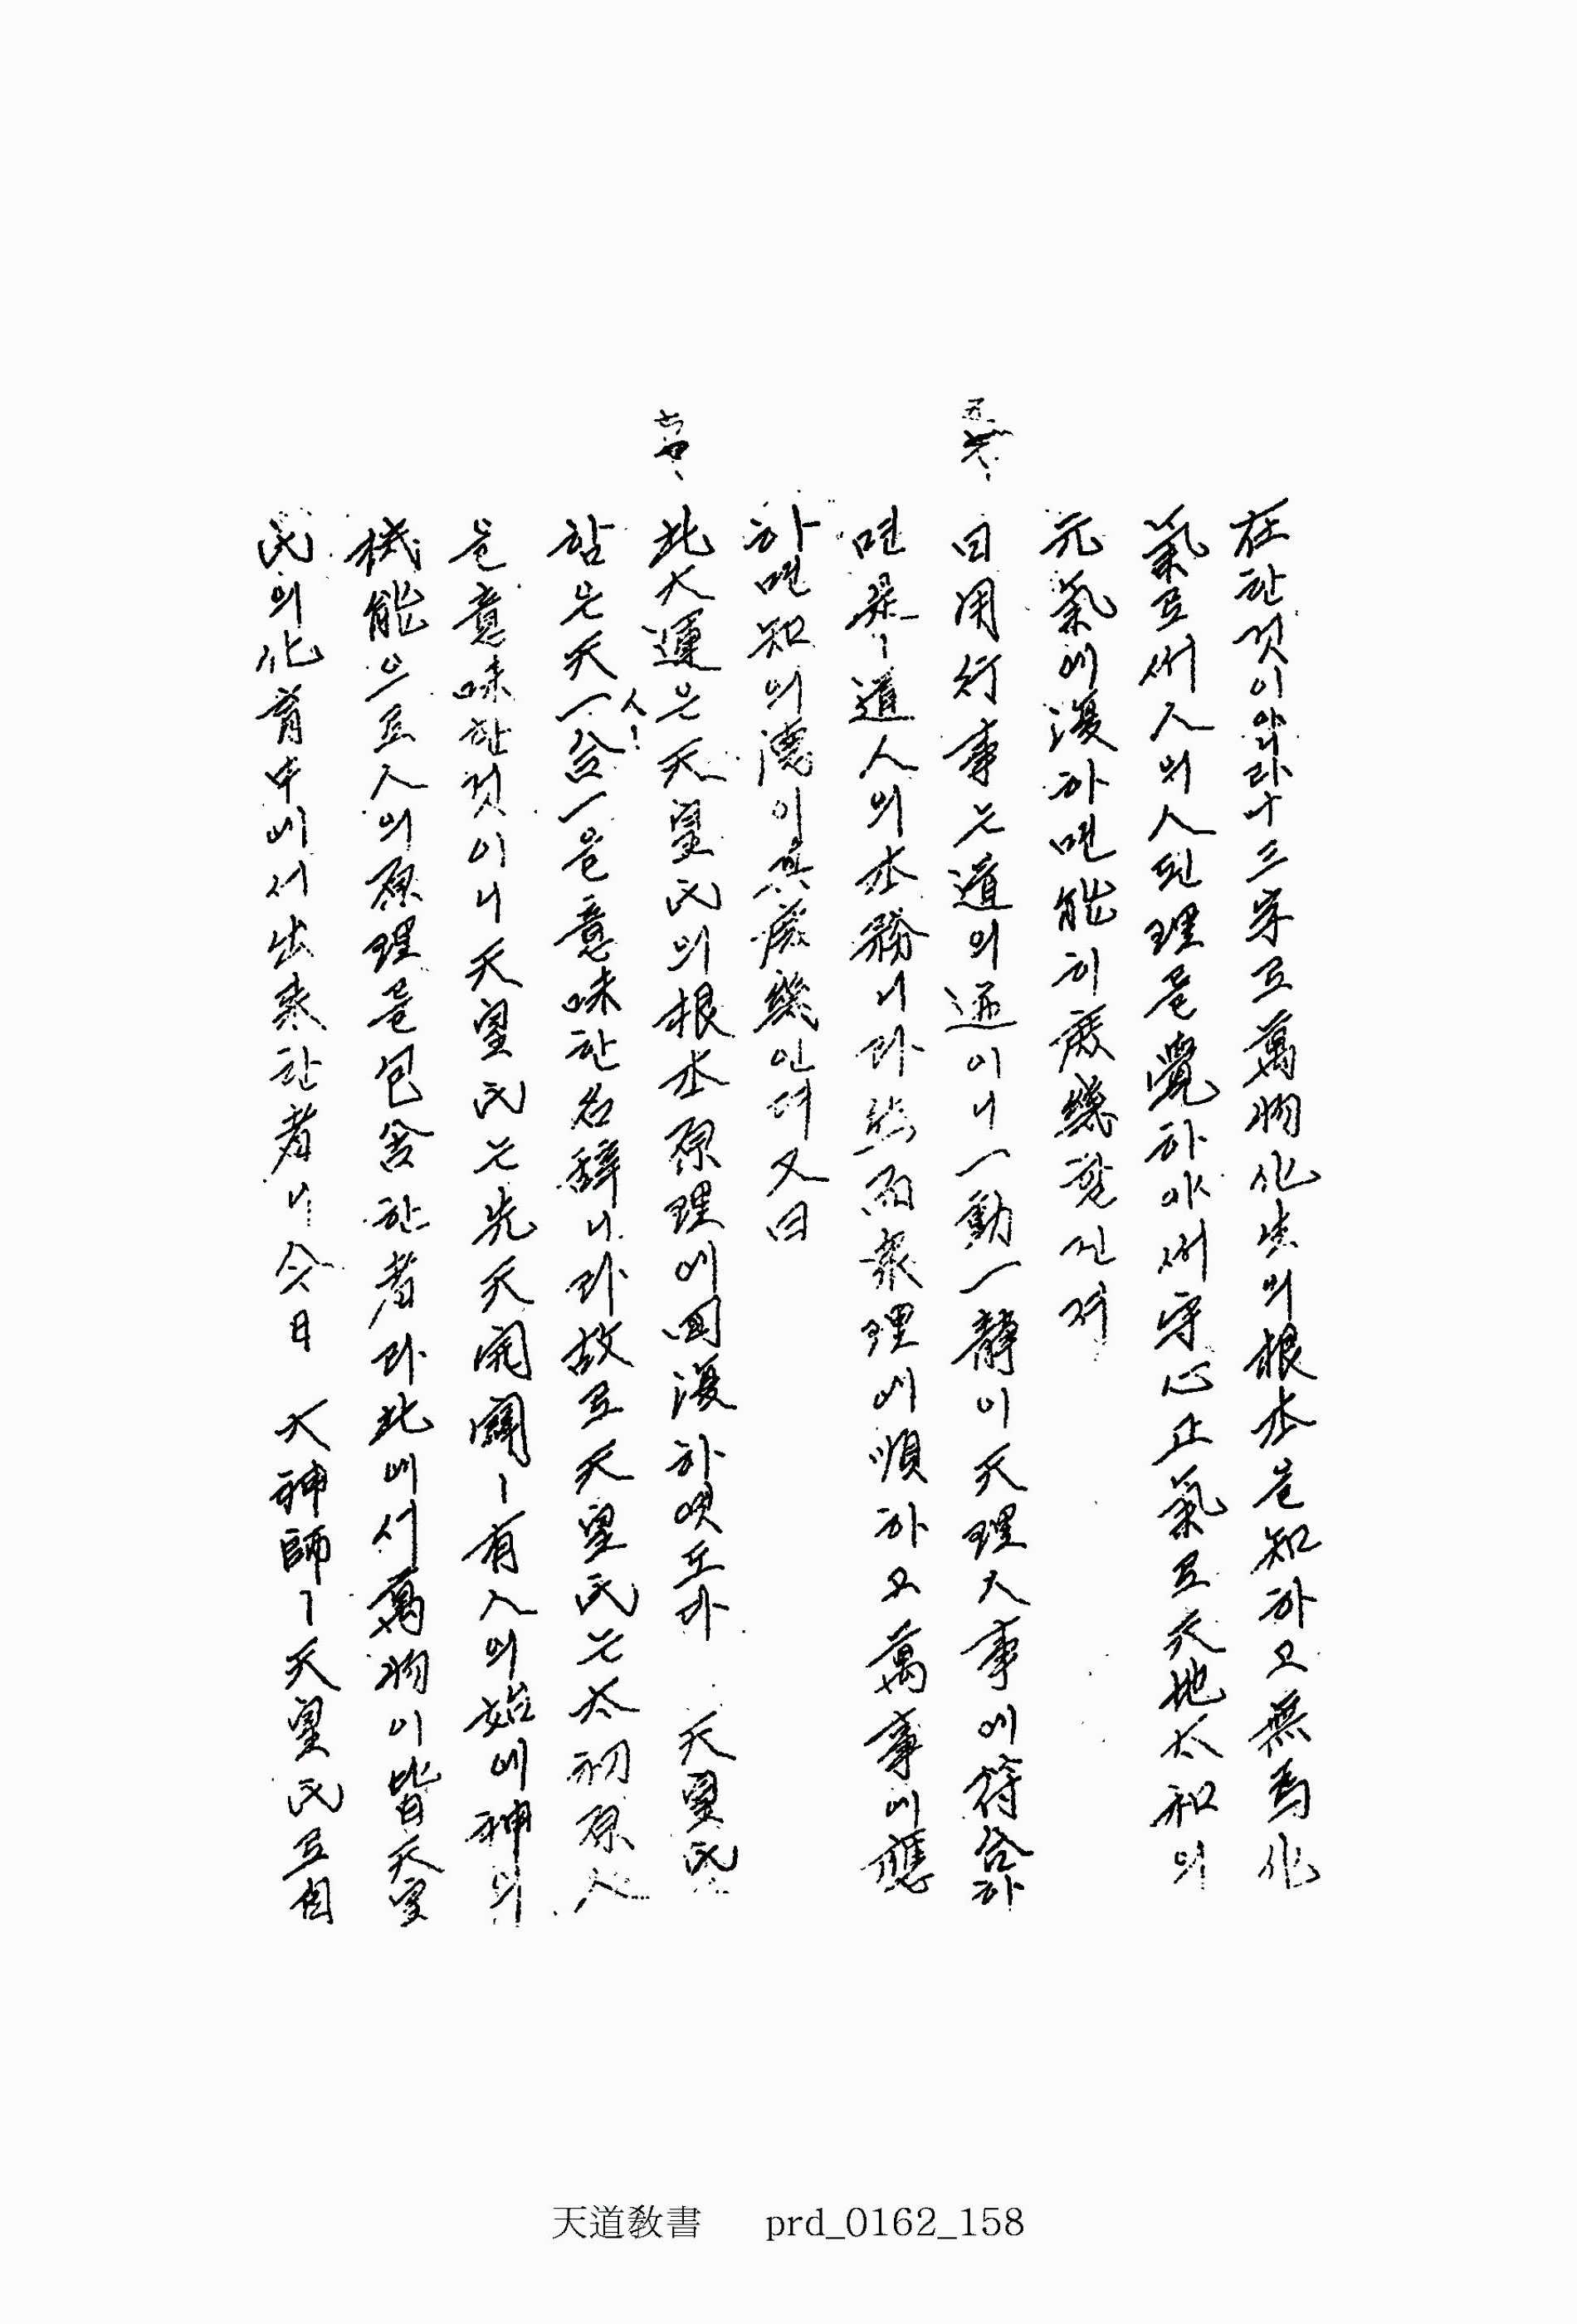 在한것이아니라나三字로萬物化生의根本을知하고無爲化
氣로써人의人된理를覺하야써守心正氣로天地太和의
元氣에復하면能히庶幾할진저
日用行事는道의아님이
日用行事는道의 이니一動一靜이天理人事에符合하
면是ㅣ道人의本務니라然而衆理에順하고萬事에應
하면知의德이其庶幾인저又曰
此大運은天皇氏의根本原理에回復하엿도다 天皇氏
함은天一人ㅣ合一을意味한名辭니라故로天皇氏는太初原人
을意味한것이니天皇氏는先天開闢ㅣ有人의始에神의
機能으로人의原理를包含한者라此에서萬物이皆天皇
氏의化育中에서出來한者니今日 大神師ㅣ天皇氏로自
天道敎書 prd_0162_158